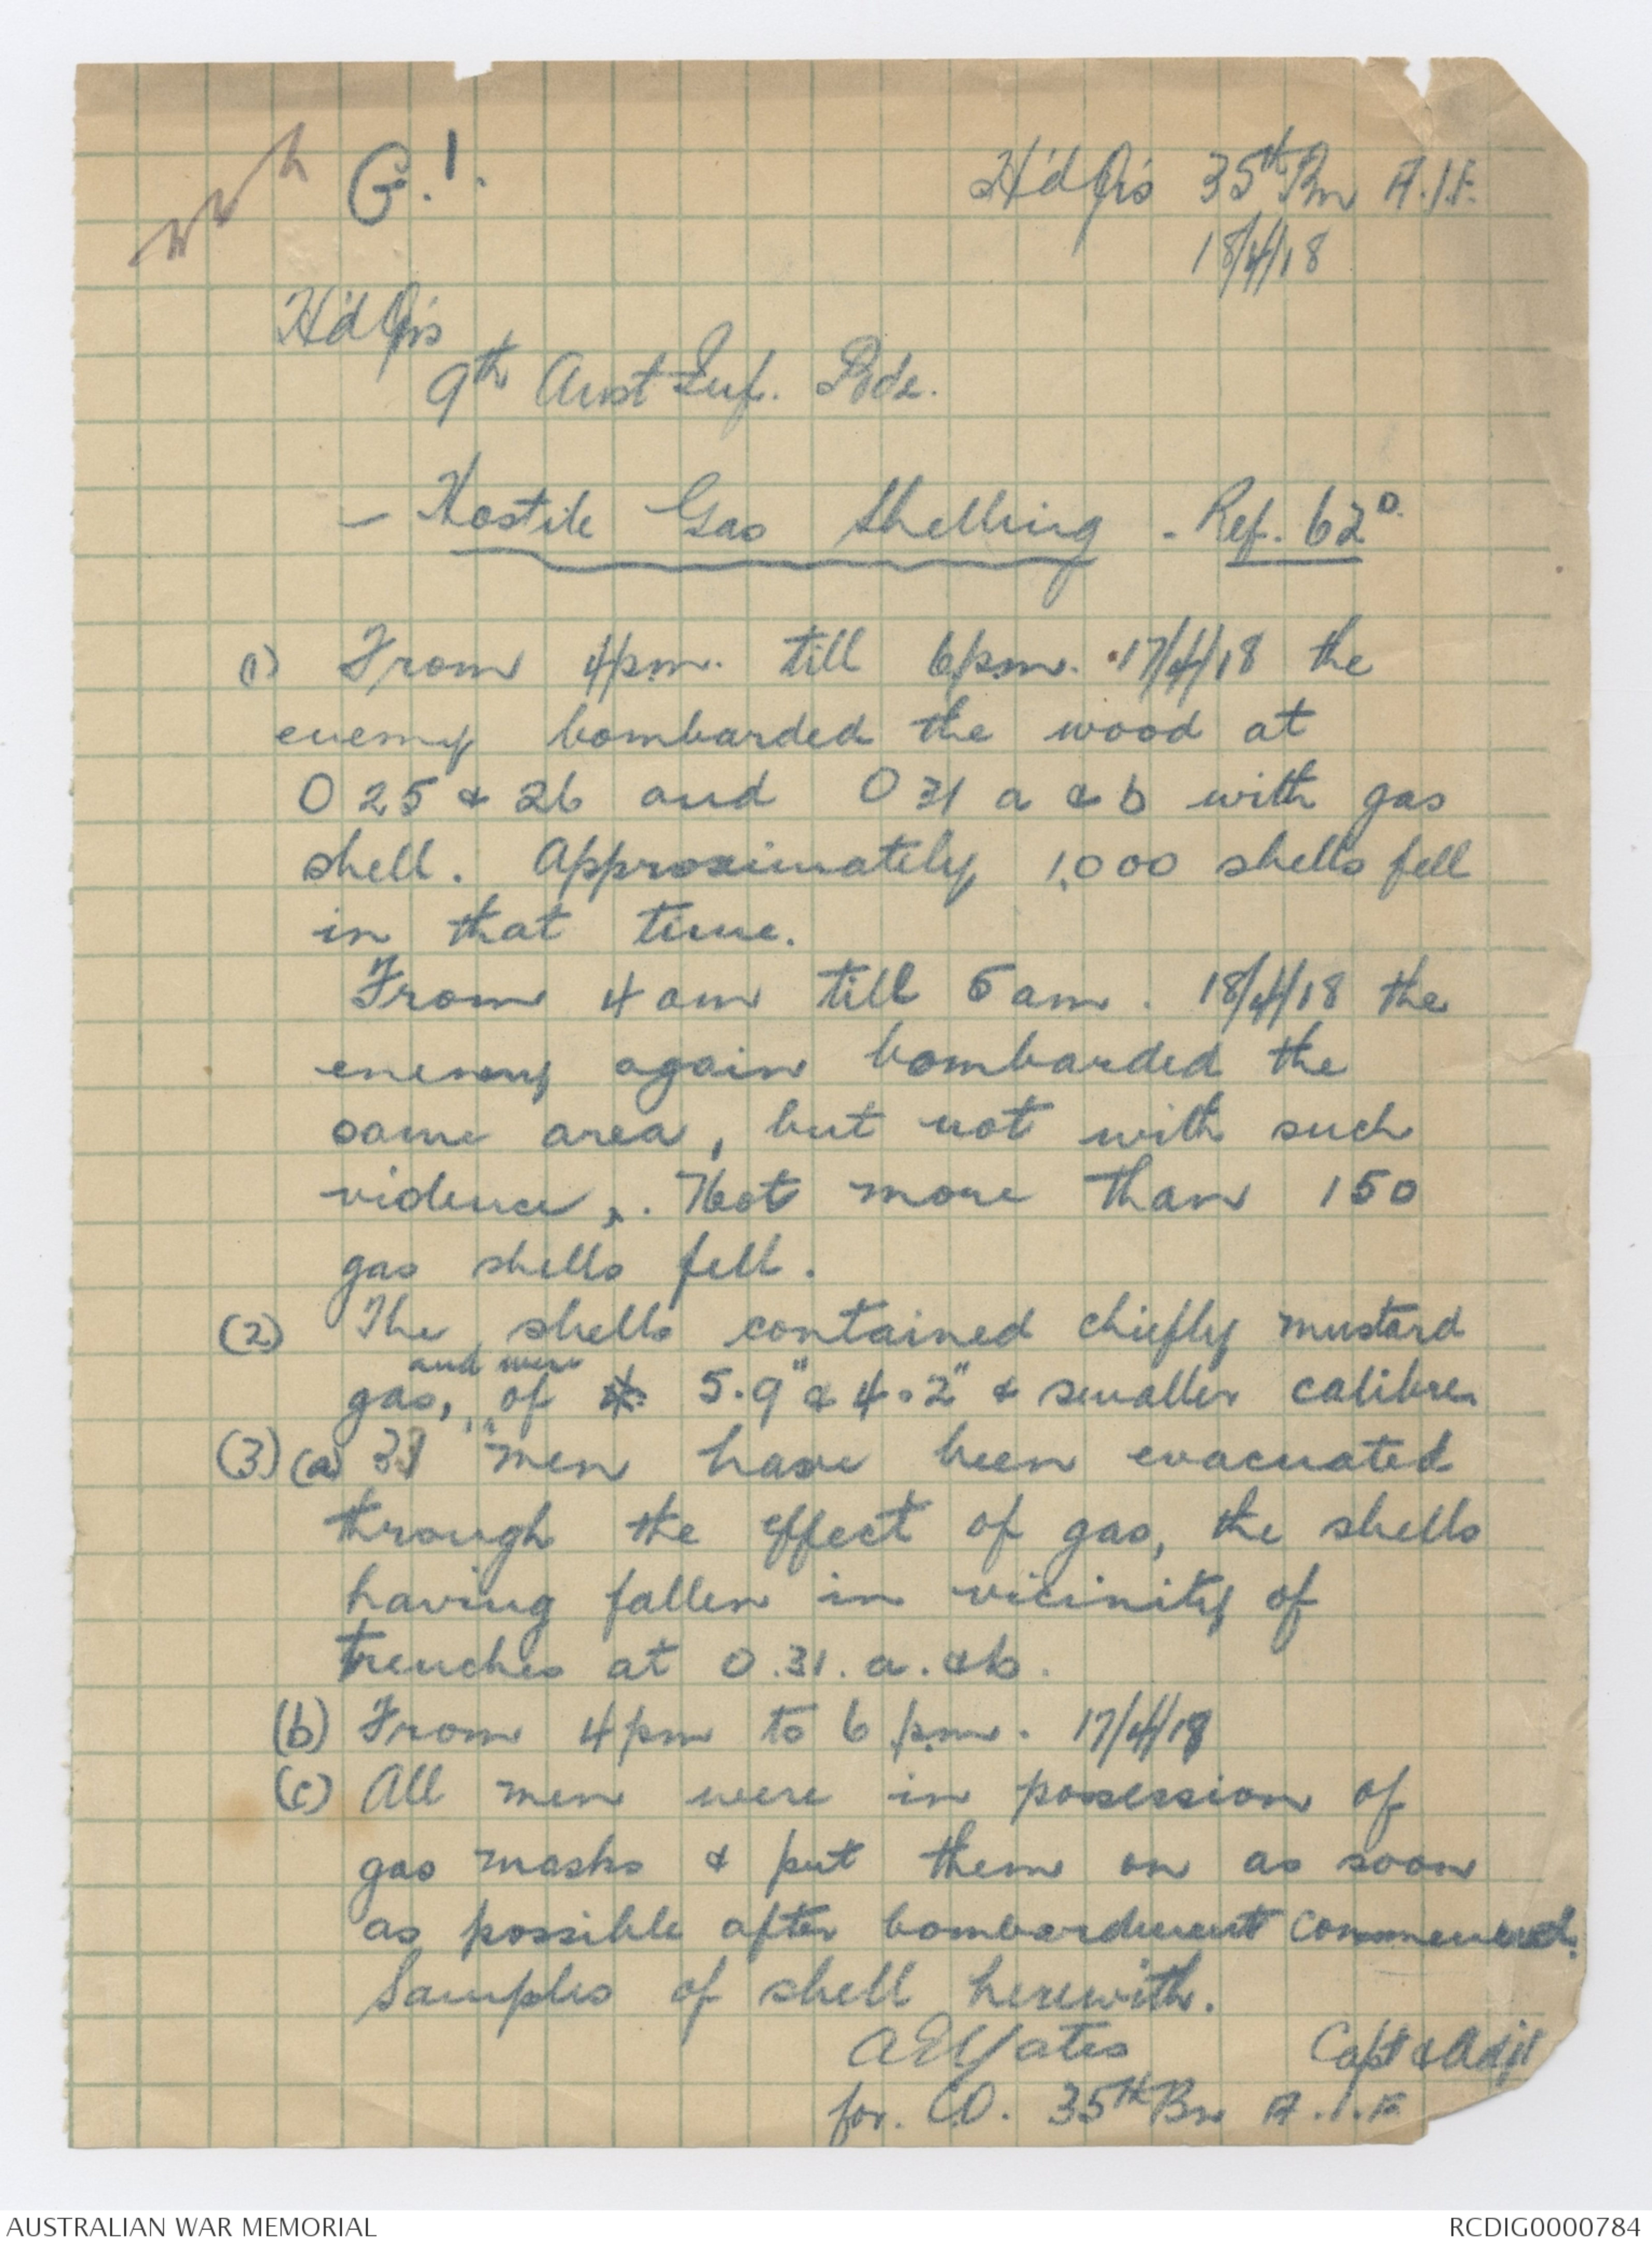 G.!.
Hd Qrs 35th Bn A.I.F.
18/4/18
Hd Qrs
9th Aust Inf. Bde.
- Hostile Gas Shelling - Ref. 62D.
(1) From 4pm. till 6pm. 17/4/18 the
enemy bombarded the wood at
O 25 & 26 and O 31 a & b with gas
shell. Approximately 1,000 shells fell
in that time.
From 4 am till 5 am. 18/4/18 the
enemy again bombarded the
same area, but not with such
violence. Not more than 150
gas shells fell.
(2) The shells contained chiefly mustard
and were
gas, of 5.9" & 4.2" & smaller calibre
(3) (a) men have been evacuated
through the effect of gas, the shells
having fallen in vicinity of
trenches at O.31.a.&b.
(b) From 4pm to 6 pm. 17/4/18
(c) All men were in possession of
gas masks & put them on as soon
as possible after bombardment commenced.
Samples of shell herewith.
A E Yates Capt & Adjt
for. CO. 35th Bn A.I.F
AUSTRALIAN WAR MEMORIAL
RCDIG0000784